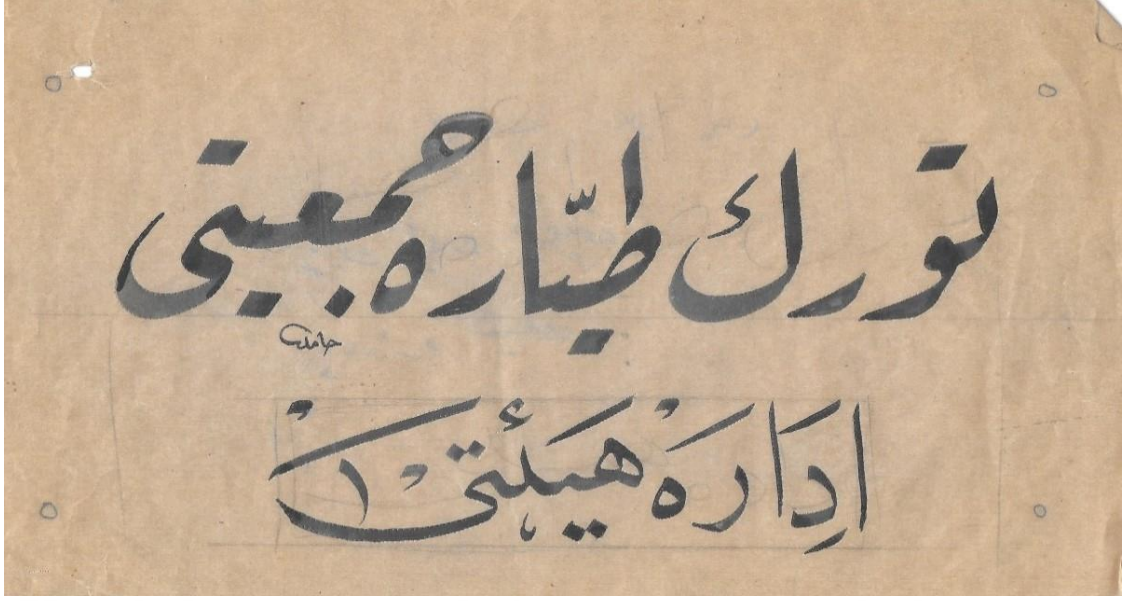 تورك طيّاره جمعيتى
حامد
اِدَارَهٔ هَيئتى